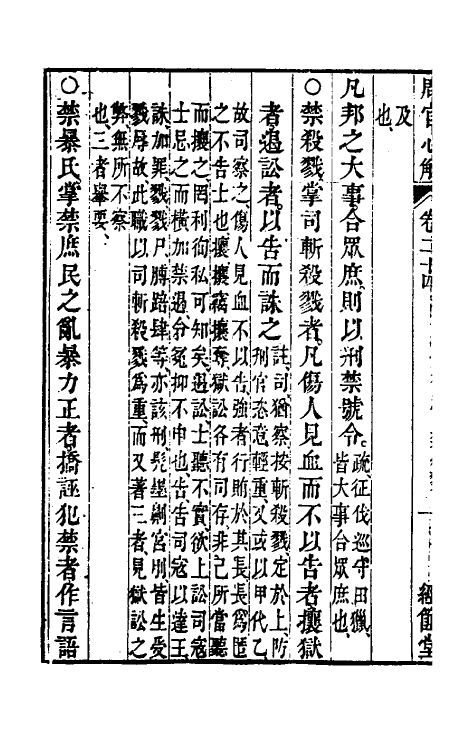 周官心解　卷二十四　經笥堂
及
也
凡邦之大事合眾庶則以刑禁號令
疏征伐巡守田獵
皆大事合眾庶也
○禁殺戮掌司斬殺戮者凡傷人見血而不以告者攘獄
者遏訟者以告而誅之
註司猶察按斬殺戮定於上防
刑官恣意輕重又或以甲代乙
故司察之傷人見血不以告強者行賄於其長長為匿
之不告士也攘竊攘奪獄訟各有司存非己所當聽
而攘之罔利徇私可知矣遏訟士聽不實欲上訟司寇
士忌之而橫加禁遏令冤抑不申也告告司寇以達王
誅加罪戮戮尸膊踣肆等亦該刑髡墨劓宮刖皆生受
戮辱故此職以司斬殺戮為重而又著三者見獄訟之
弊無所不察
也三者舉要
○禁暴氏掌禁庶民之亂暴力正者撟誣犯禁者作言語